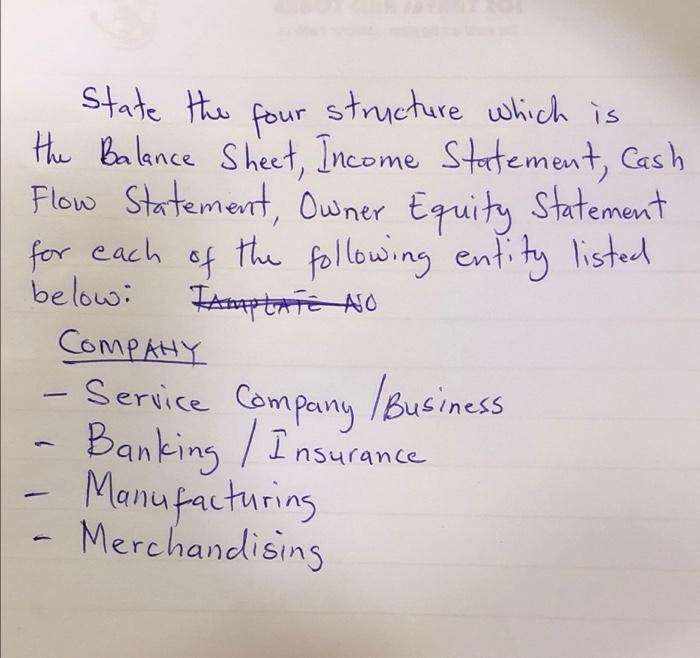 State the four structure which is
the Balance Sheet, Income Statement, Cash
Flow Statement, Owner Equity Statement
for each of the following entity listed
below: TAmpLATE NO
COMPANY
- Service Company / Business
- Banking / Insurance
- Manufacturing
- Merchandising